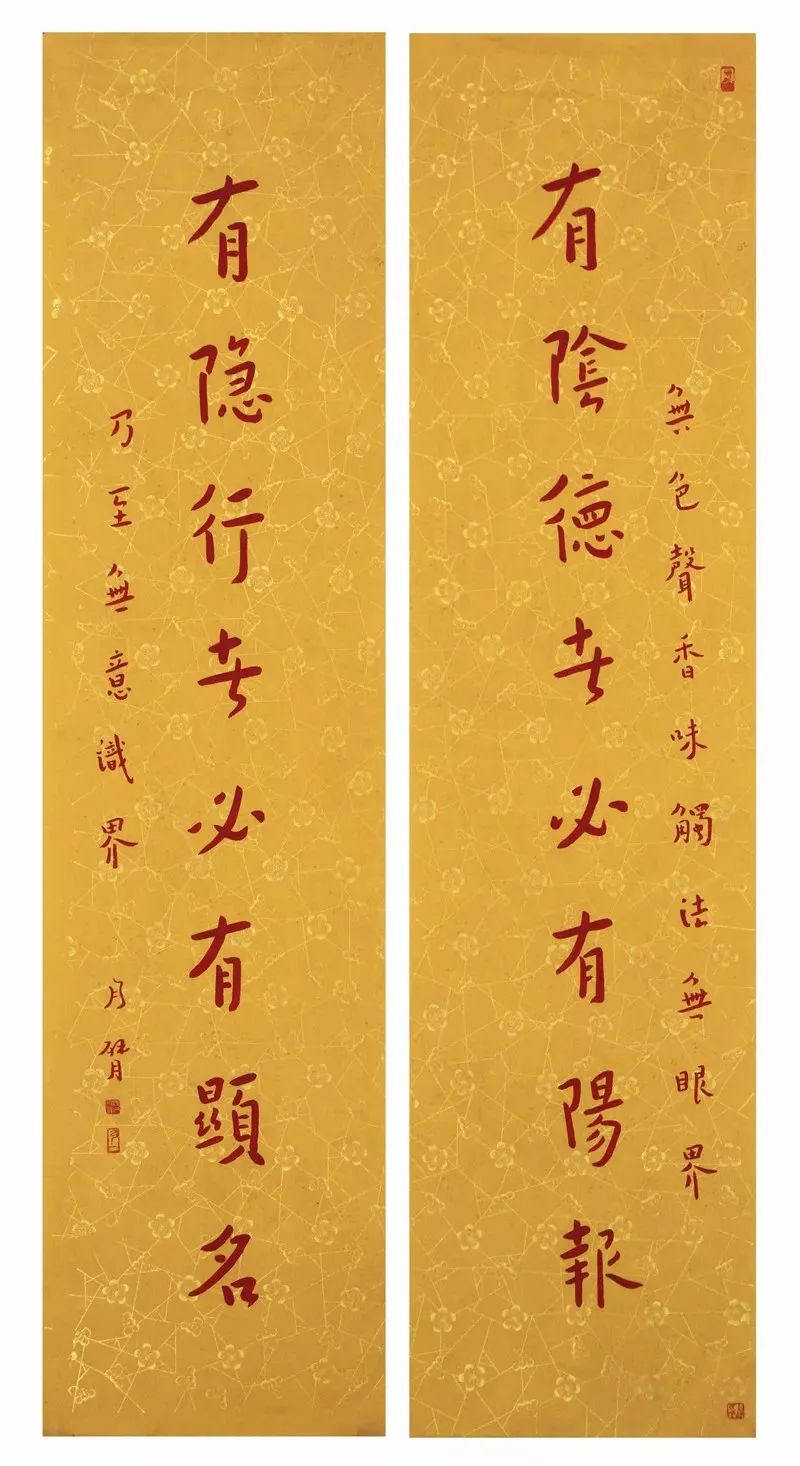 有陰德者必有陽報
無色聲香味觸法無眼界
有隐行者必有顯名
乃至無意識界
月臂